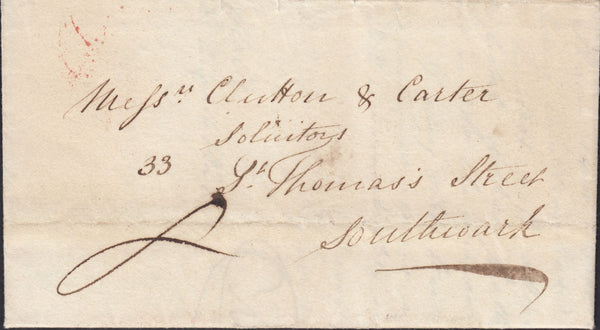 Messrs Clutton & Carter
Solicitors
33 St Thomas's Street
Southwark